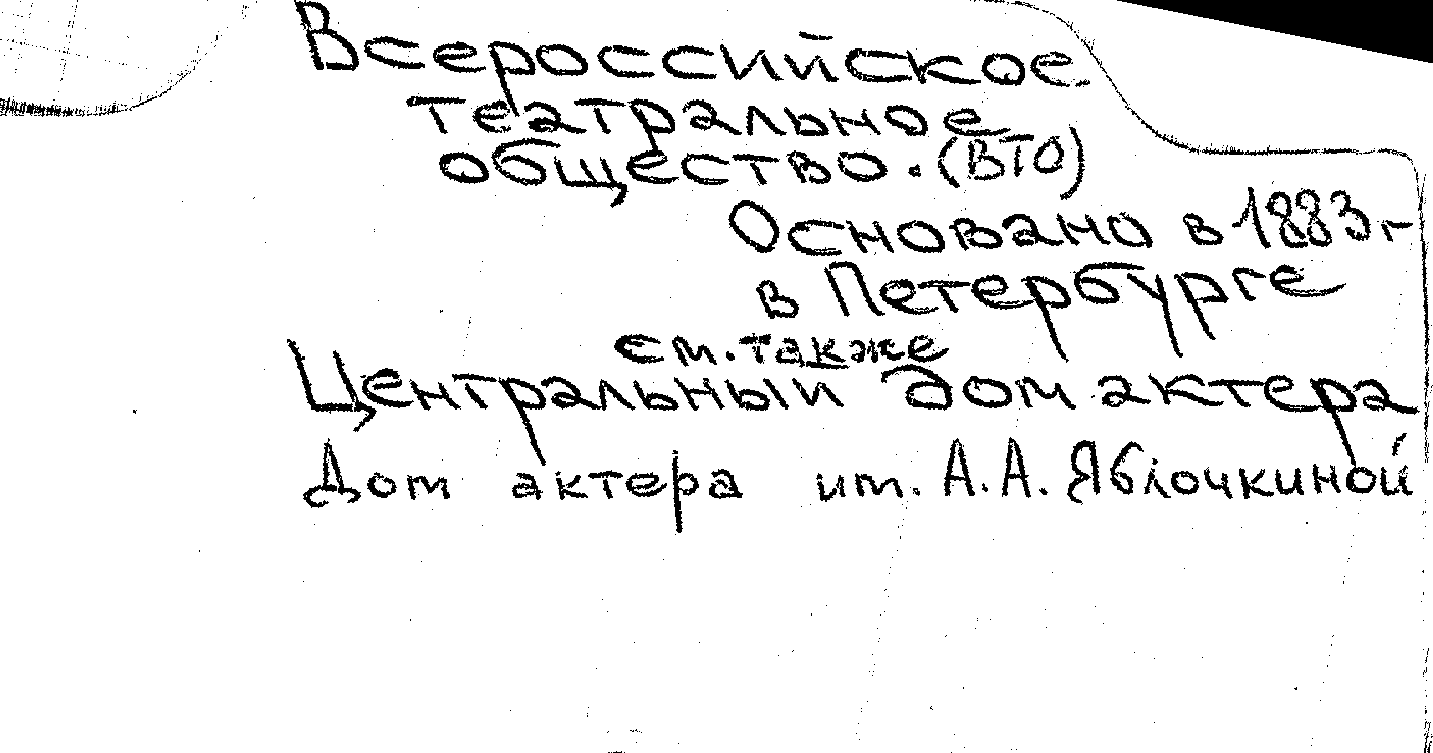 Всероссийское
театральное
общество. (ВТО)
Основано в 1883 г
в Петербурге
см. также
Центральный дом актера
Дом актера им. А.А. Яблочкиной